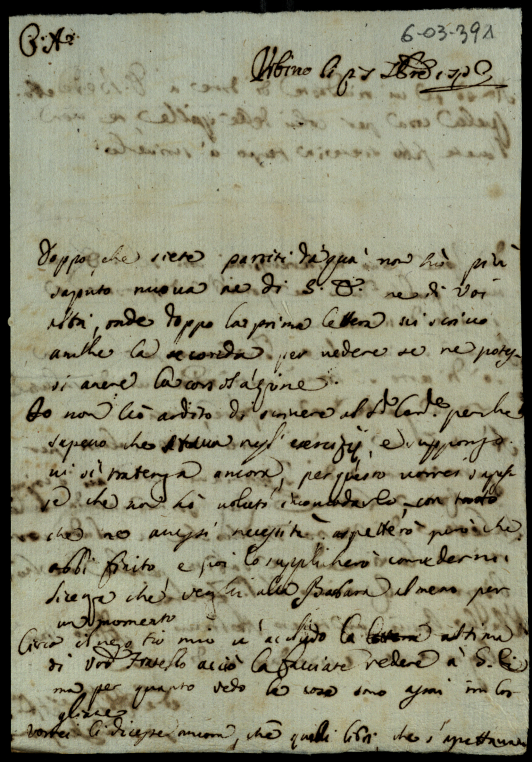 6-03-391
C. A.
Urbino li
Doppo che siete partiti da quà non hò più
saputo nuova ne di S. E. ne di voi
altri, onde doppo la prima lettera vi scrivo
anche la seconda per vedere se ne potes-
si avere la consolazione.
Io non hò ardito di scrivere al S.r Card.e perche
sapevo che stava negl'esercizij, e suppongo
vi si tratenga ancora, per questo vorrei
che non hò voluto incomodarlo, con tutto
che ne avessi necessità, aspetterò però che
abbi finito e poi lo supplicherò concedermi
licenza che venghi alla Barbara almeno per
un momento
Circa il neg.o tio mio v'acludo la lettera ultima
di vro Fratello acciò la facciate vedere à S. E.
ma per quanto vedo le cose sono assai im
vorrei li dicesse ancora, che quelli libri che s'aspettavano